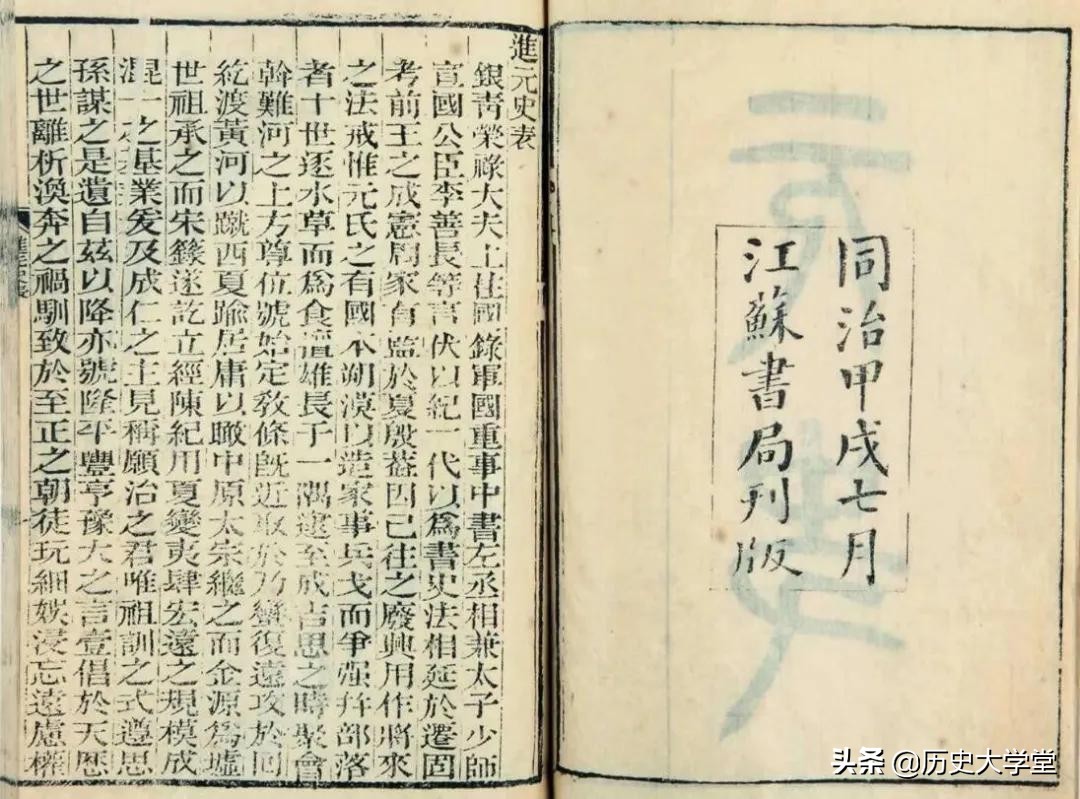 同治甲戌七月
江蘇書局刊版
進元史表
銀青榮祿大夫上柱國錄軍國重事中書左丞相兼太子少師
宣國公臣李善長等言伏以紀一代以爲書史法相延於遷固
考前王之成憲周家有監於夏殷葢因已往之廢興用作將來
之法戒惟元氏之有國本朔漠以造家事兵戈而爭强并部落
者十世逐水草而爲食擅雄長于一隅逮至成吉思之時聚會
斡難河之上方尊位號始定敎條旣近取於乃蠻復遠攻於回
紇渡黃河以蹴西夏踰居庸以瞰中原太宗繼之而金源爲墟
世祖承之而宋籙遂訖立經陳紀用夏變夷肆宏遠之規模成
混一之基業爰及成仁之主見稱願治之君唯祖訓之式遵思
孫謀之是遺自兹以降亦號隆平豐亨豫大之言壹倡於天歷
之世離析渙奔之禍馴致於至正之朝徒玩細娛浸忘遠慮權
头条 @历史大学堂